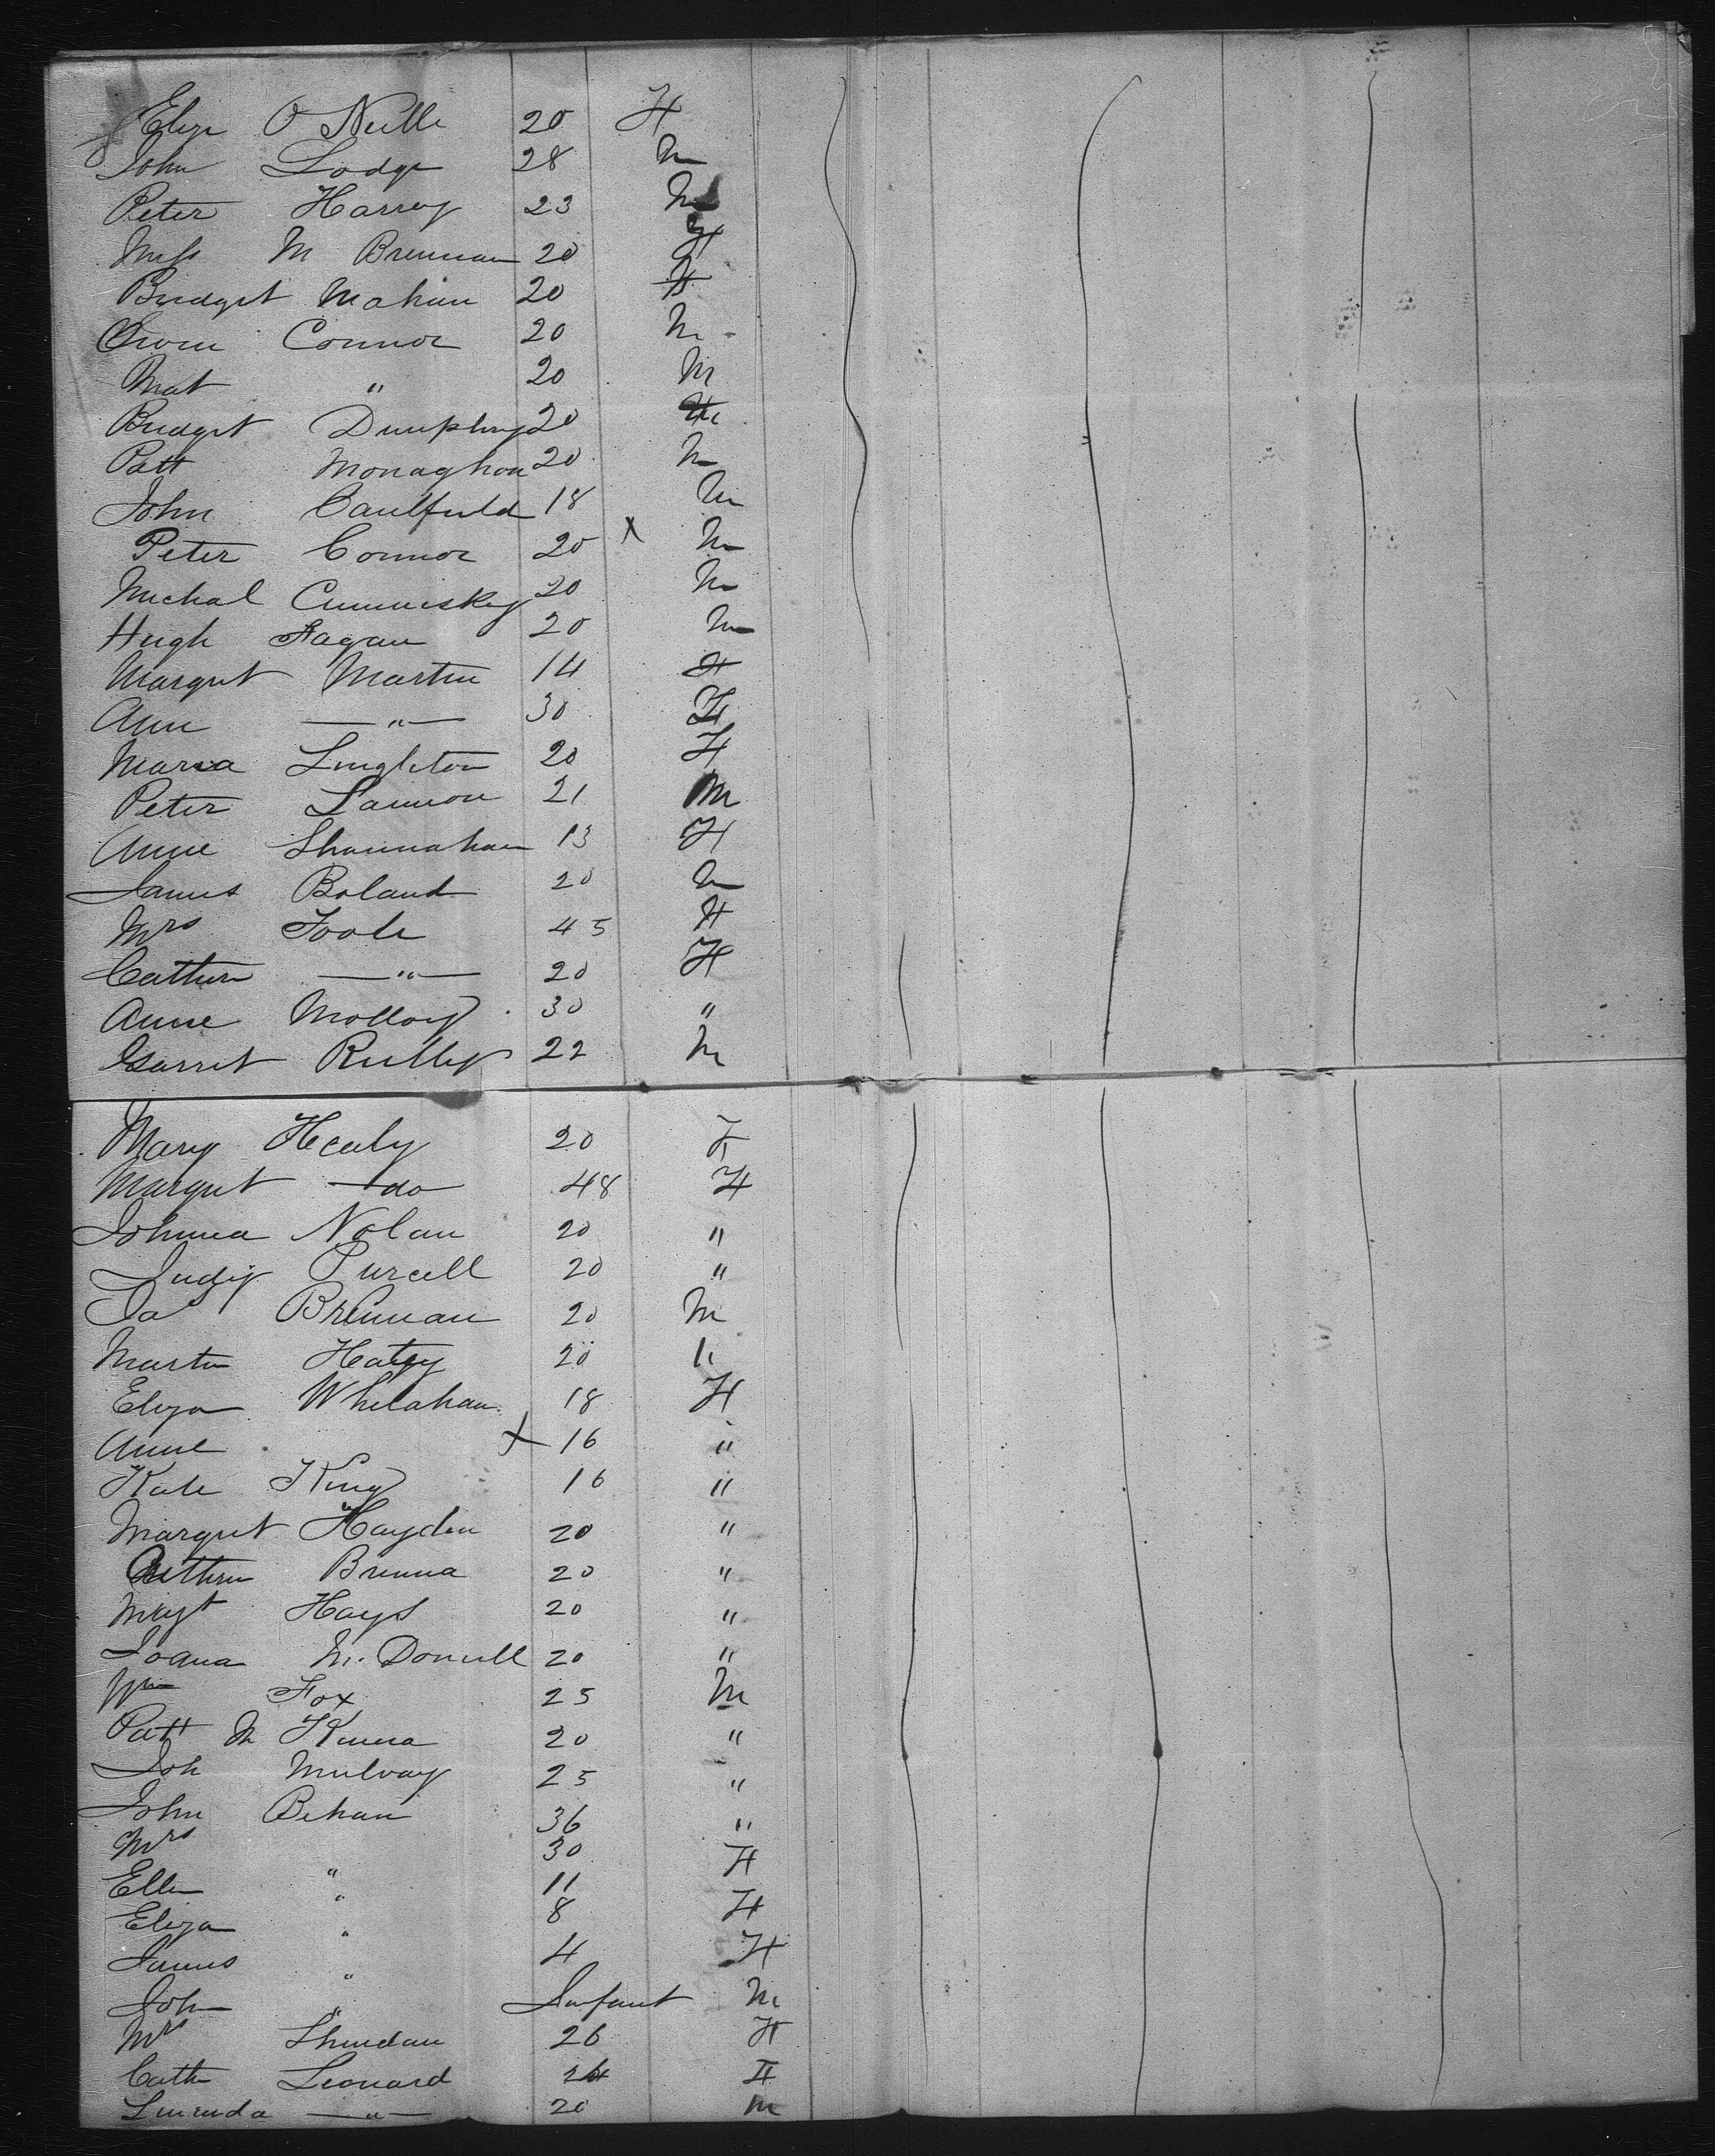 Eliza O Neille 20 F
John Lodge 28 M
Peter Harrey 23 M
Miss M Brennan 20 F
Bridget Mahan 20 F
Owen Connor 20 M
Mat " 20 M
Bridget Dunphy 20
Patt Monaghan 20 M
John Caulfield 18 M
Peter Connor 20 x M
Michal Cummiskey 20 M
Hugh Fagan 20 M
Margret Martin 14 F
Ann — " — 30 F
Maria Singleton 20 F
Peter Lannon 21 M
Anne Shannahan 13 F
James Boland 20 M
Mrs Toole 45 F
Cathrin — " — 20 F
Anne Molloy 30 "
Garret Reilly 22 M
Mary Healy 20 F
Margret — do 48 F
Johnna Nolan 20 "
Judy Purcell 20 "
Ja Brennan 20 M
Martin Hatey 20 "
Eliza Whelahan 18 F
Anne x 16 "
Kate King 16 "
Margret Hayden 20 "
Cathrin Brenna 20 "
Magt Hays 20 "
Joana Mc Donnell 20 "
Wm Fox 25 M
Patt Mc Kenna 20 "
Joh Mulvay 25 "
John Behan 36 "
Mrs " 30 F
Ellen " 11
Eliza " 8 F
James " 4 F
John " Infant M
Mrs Sheridan 26 F
Cath Leonard 24 F
— " — 20 M